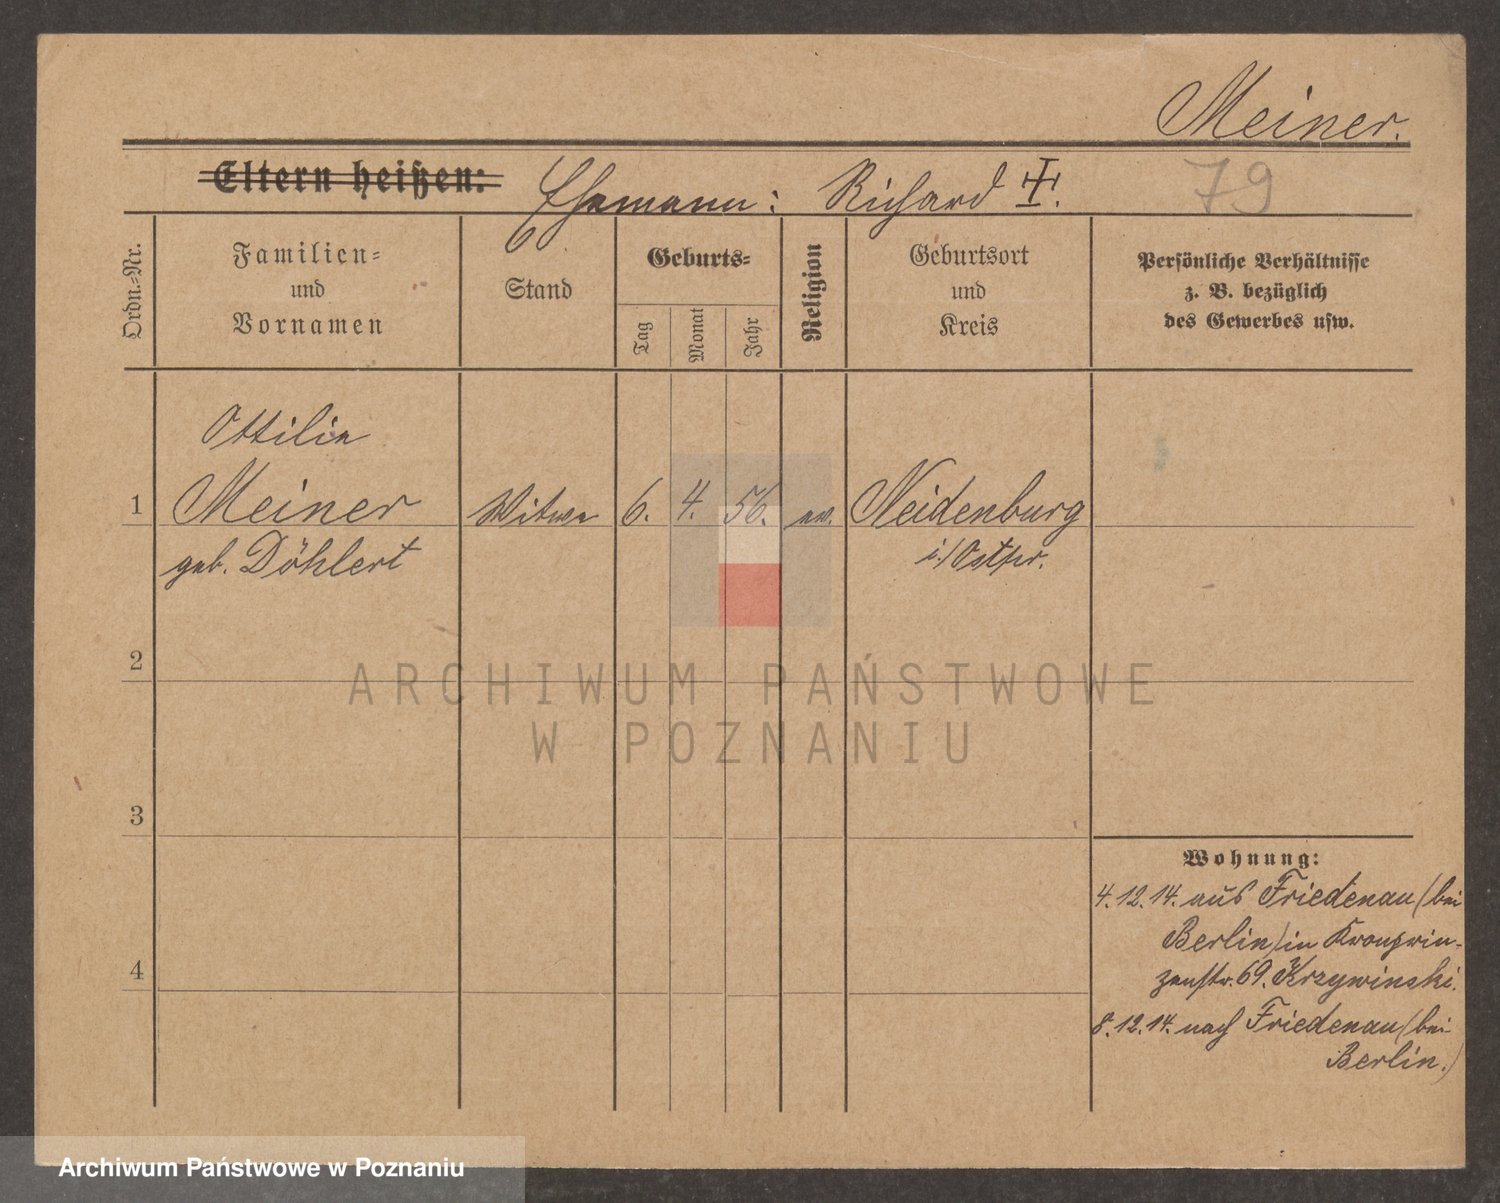 Meiner.
Eltern heißen: Ehemann: Richard †. 79
Ordn.-Nr.
Familien-
und
Vornamen
Stand
Geburts-
Tag
Monat
Jahr
Religion
Geburtsort
und
Kreis
Persönliche Verhältnisse
z. B. bezüglich
des Gewerbes usw.
Ottilie
1 Meiner Witwe 6. 4. 56. ev. Neidenburg
geb. Döhlert i/Ostpr.
2
ARCHIWUM PAŃSTWOWE
W POZNANIU
3
Wohnung:
4.12.14. aus Friedenau (bei
Berlin) in Kronprin-
zenstr. 69. Krzywinski.
4
8.12.14. nach Friedenau (bei
Berlin.)
Archiwum Państwowe w Poznaniu